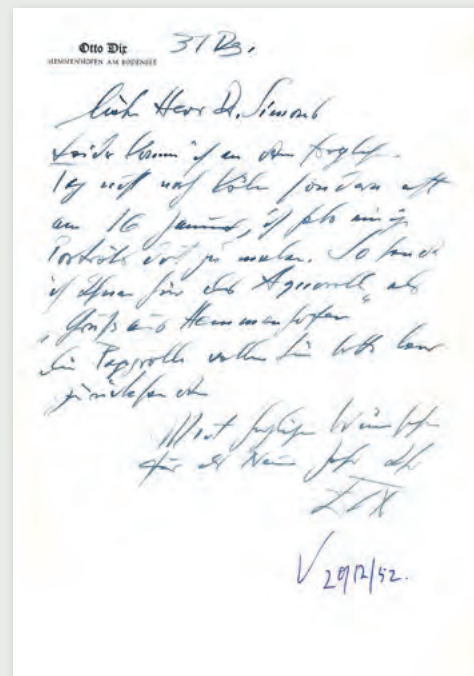 Otto Dix
HEMMENHOFEN AM BODENSEE
31 Dz.
Herr Dr. Simons
Leider komm ich an dem
Tag nicht nach Köln sondern erst
am 16 Januar, ich habe einige
Porträts dort zu malen. So sende
ich Ihnen für das Aquarell als
„Gruß aus Hemmenhofen"
die Papprolle wollen Sie bitte leer
zurücksenden
Mit herzlichen Wünschen
für das Neue Jahr Ihr
DIX
29/12/52.